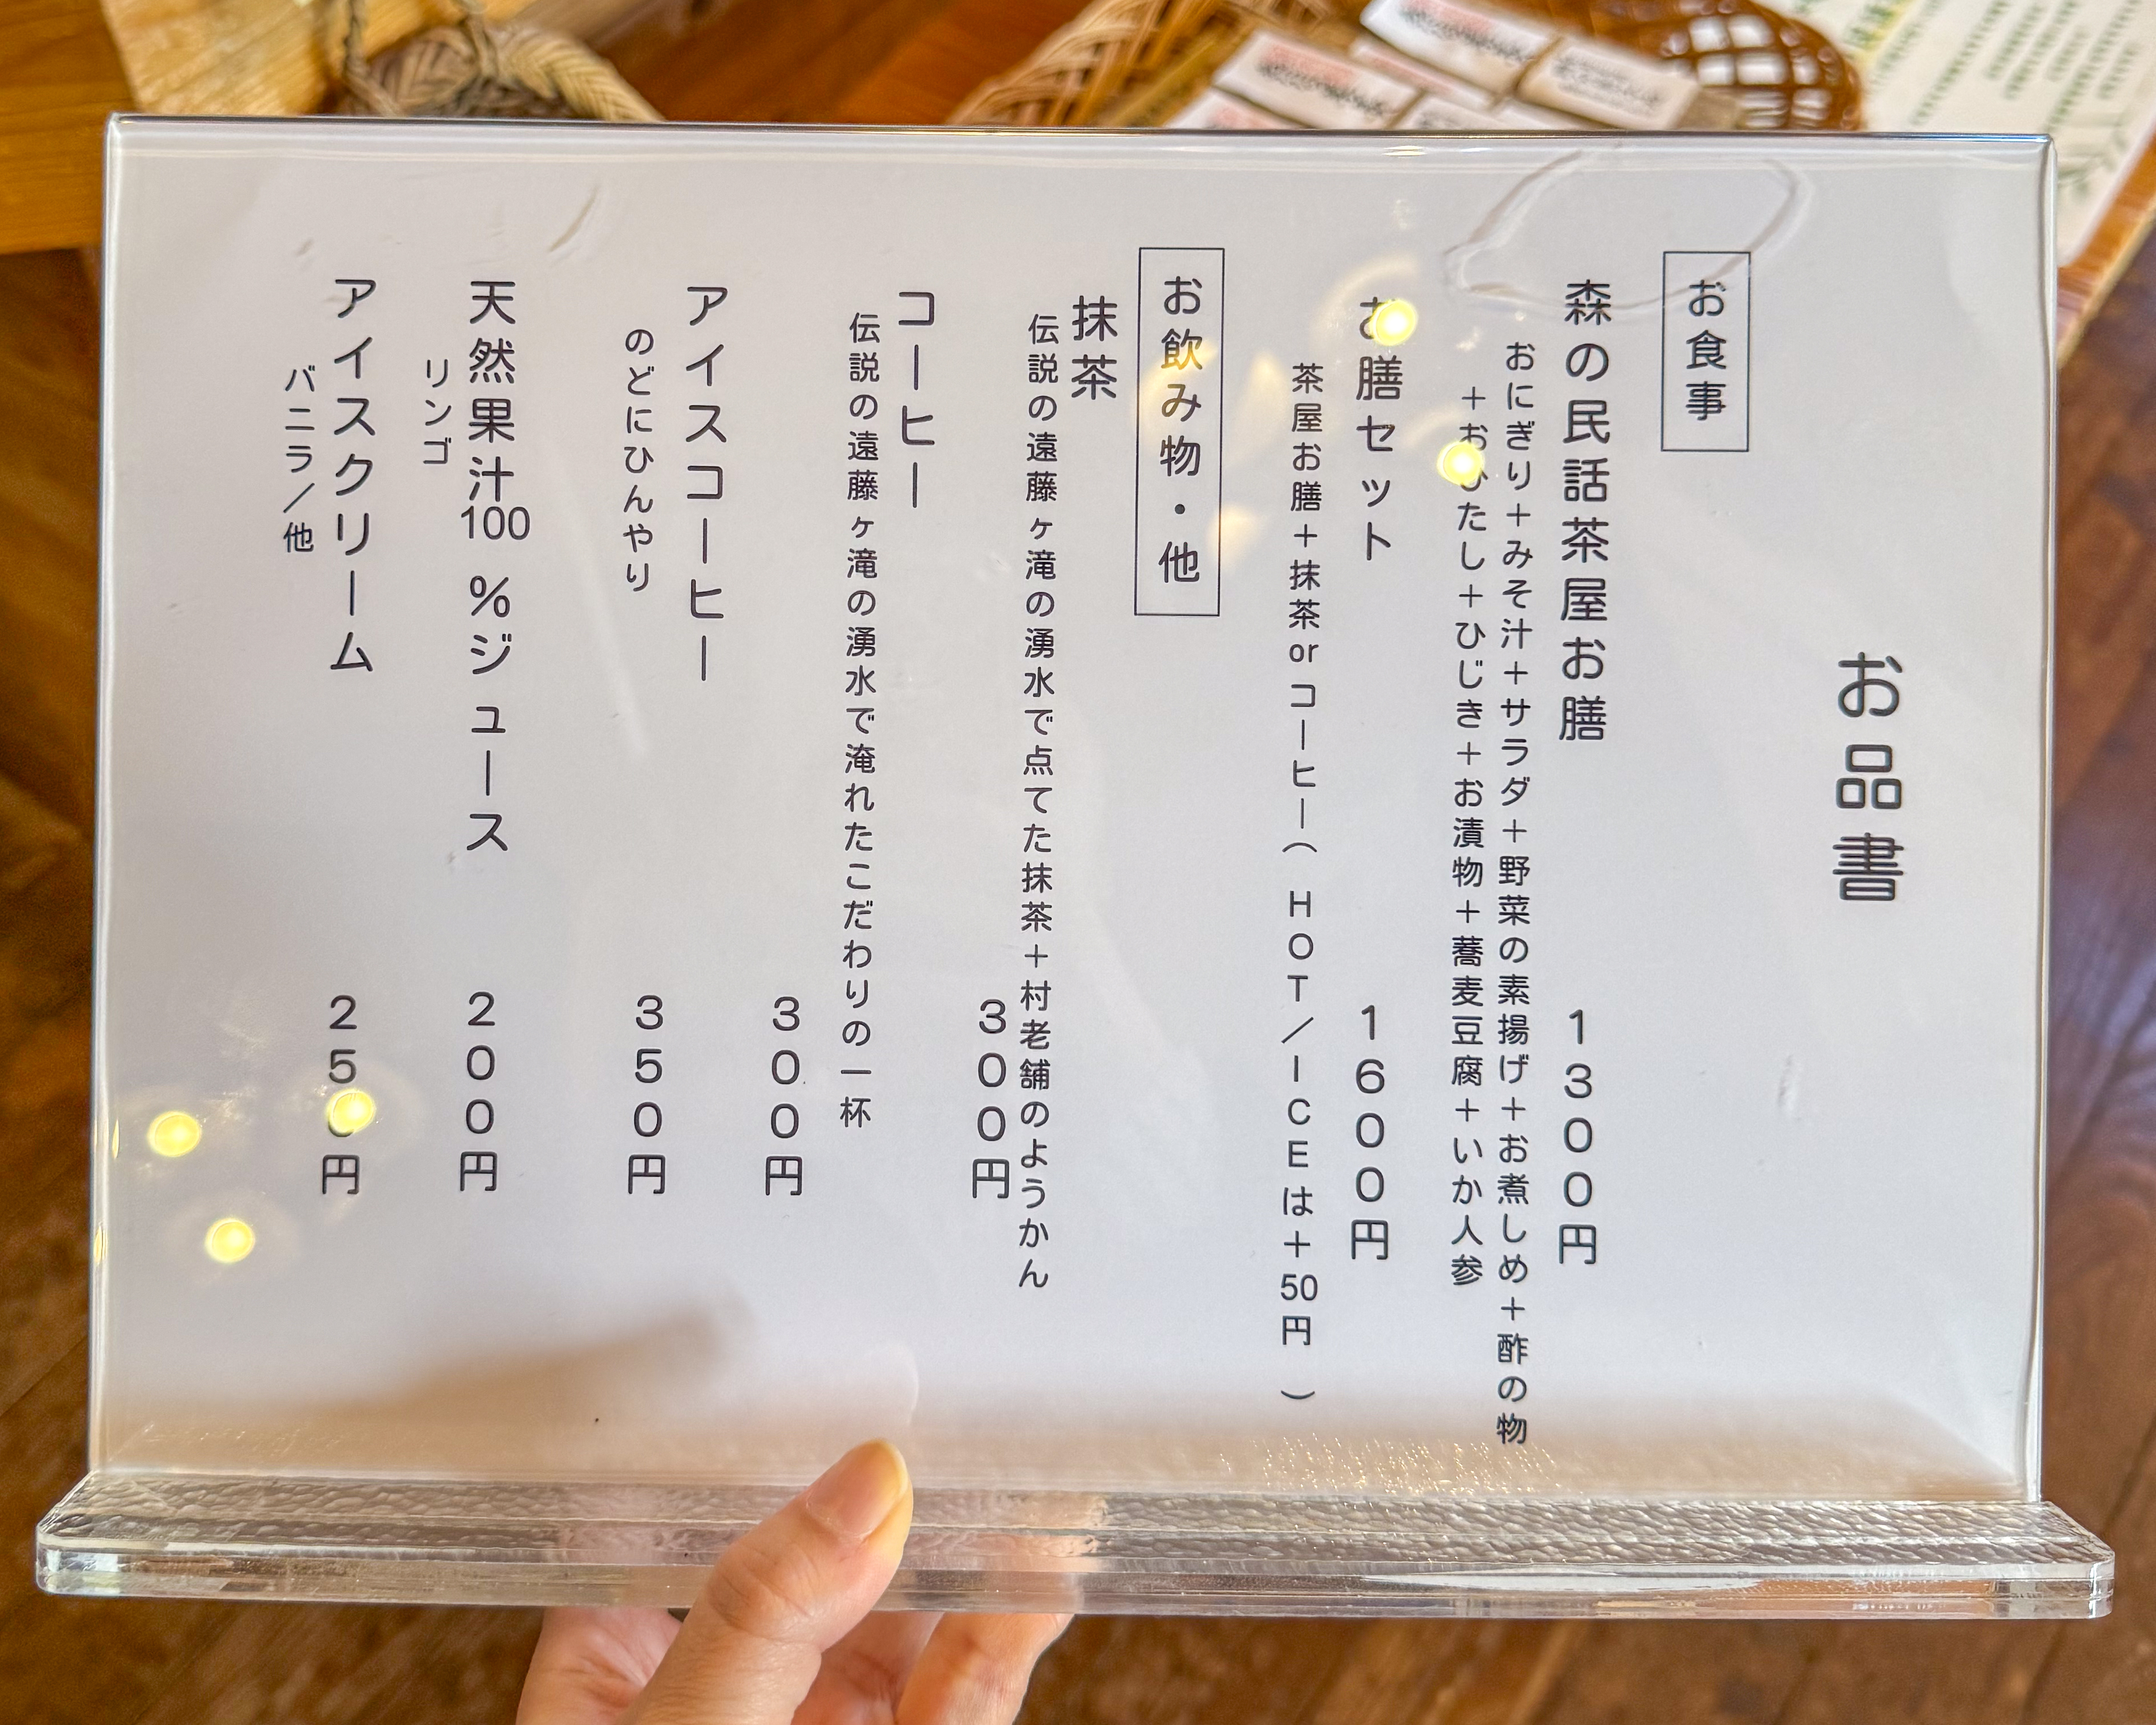 お品書
お食事
森の民話茶屋お膳 1300円
おにぎり+みそ汁+サラダ+野菜の素揚げ+お煮しめ+酢の物
+おひたし+ひじき+お漬物+蕎麦豆腐+いか人参
お膳セット 1600円
茶屋お膳+抹茶orコーヒー(HOT/ICEは+50円)
お飲み物・他
抹茶
伝説の遠藤ヶ滝の湧水で点てた抹茶+村老舗のようかん
300円
コーヒー
伝説の遠藤ヶ滝の湧水で淹れたこだわりの一杯
300円
アイスコーヒー
350円
のどにひんやり
天然果汁100%ジュース 200円
リンゴ
アイスクリーム 250円
バニラ/他